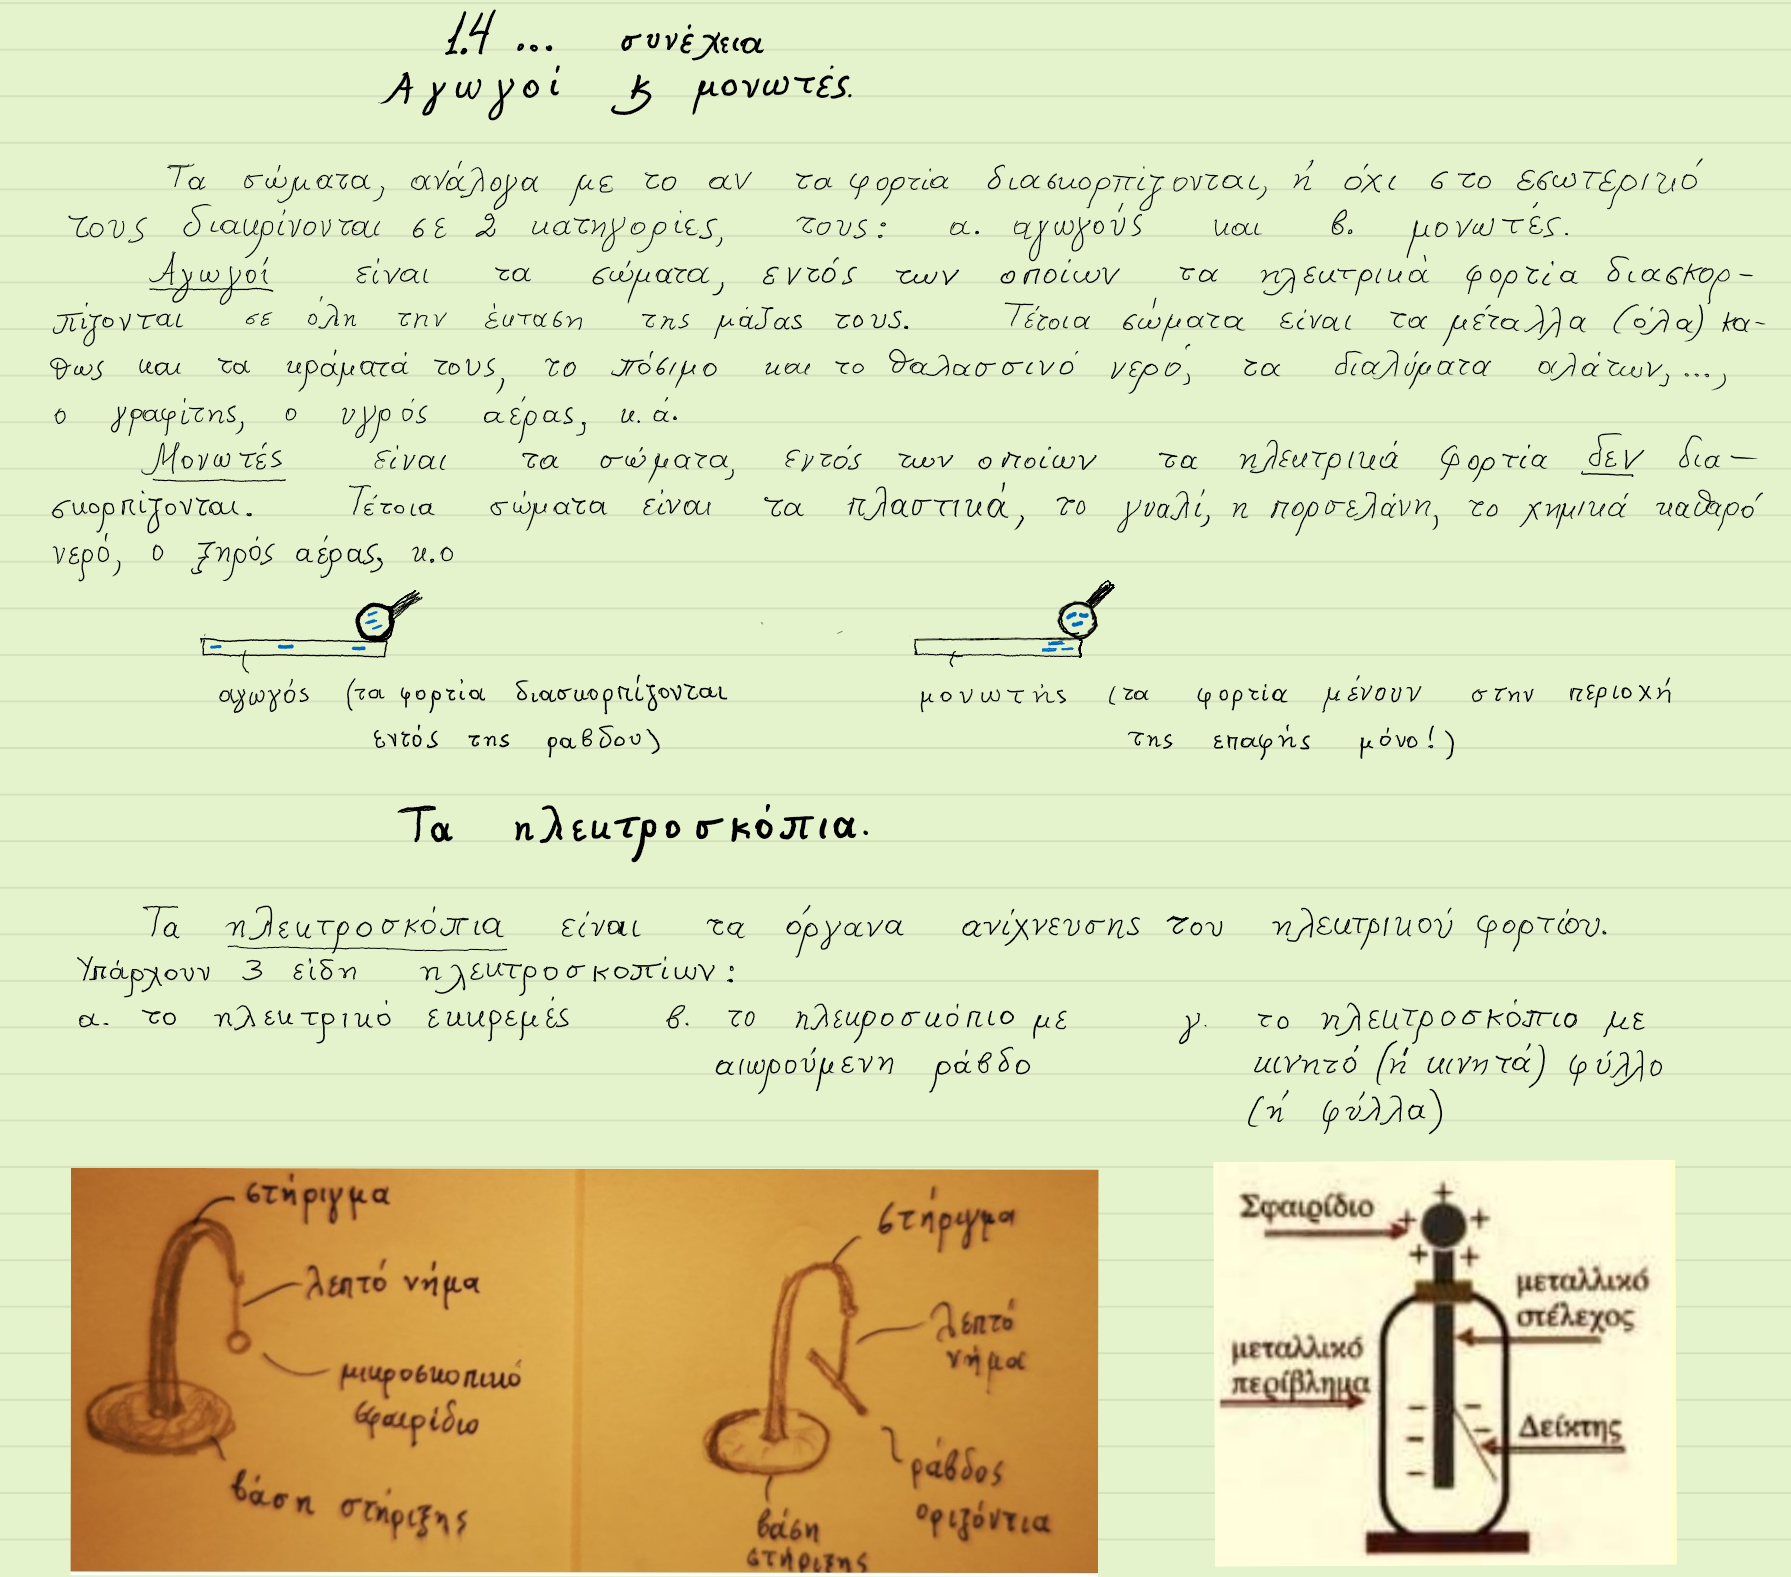 1.4 ... συνέχεια
Αγωγοί & μονωτές.
Τα σώματα, ανάλογα με το αν τα φορτία διασκορπίζονται, ή όχι στο εσωτερικό
τους διακρίνονται σε 2 κατηγορίες, τους: α. αγωγούς και β. μονωτές.
Αγωγοί είναι τα σώματα, εντός των οποίων τα ηλεκτρικά φορτία διασκορ-
πίζονται σε όλη την έκταση της μάζας τους. Τέτοια σώματα είναι τα μέταλλα (όλα) κα-
θως και τα κράματά τους, το πόσιμο και το θαλασσινό νερό, τα διαλύματα αλάτων,...,
ο γραφίτης, ο υγρός αέρας, κ.ά.
Μονωτές είναι τα σώματα, εντός των οποίων τα ηλεκτρικά φορτία δεν δια-
σκορπίζονται. Τέτοια σώματα είναι τα πλαστικά, το γυαλί, η πορσελάνη, το χημικά καθαρό
νερό, ο ξηρός αέρας, κ.ο
αγωγός (τα φορτία διασκορπίζονται
εντός της ραβδου)
μονωτής (τα φορτία μένουν στην περιοχή
της επαφής μόνο!)
Τα ηλεκτροσκόπια.
Τα ηλεκτροσκόπια είναι τα όργανα ανίχνευσης του ηλεκτρικού φορτίου.
Υπάρχουν 3 είδη ηλεκτροσκοπίων:
α. το ηλεκτρικό εκκρεμές
β. το ηλεκροσκόπιο με
αιωρούμενη ράβδο
γ. το ηλεκτροσκόπιο με
κινητό (ή κινητά) φύλλο
(ή φύλλα)
στήριγμα
λεπτό νήμα
μικροσκοπικό
σφαιρίδιο
βάση στήριξης
στήριγμα
λεπτό
νήμα
ράβδος
οριζόντια
βάση
στήριξης
Σφαιρίδιο
μεταλλικό
στέλεχος
μεταλλικό
περίβλημα
Δείκτης